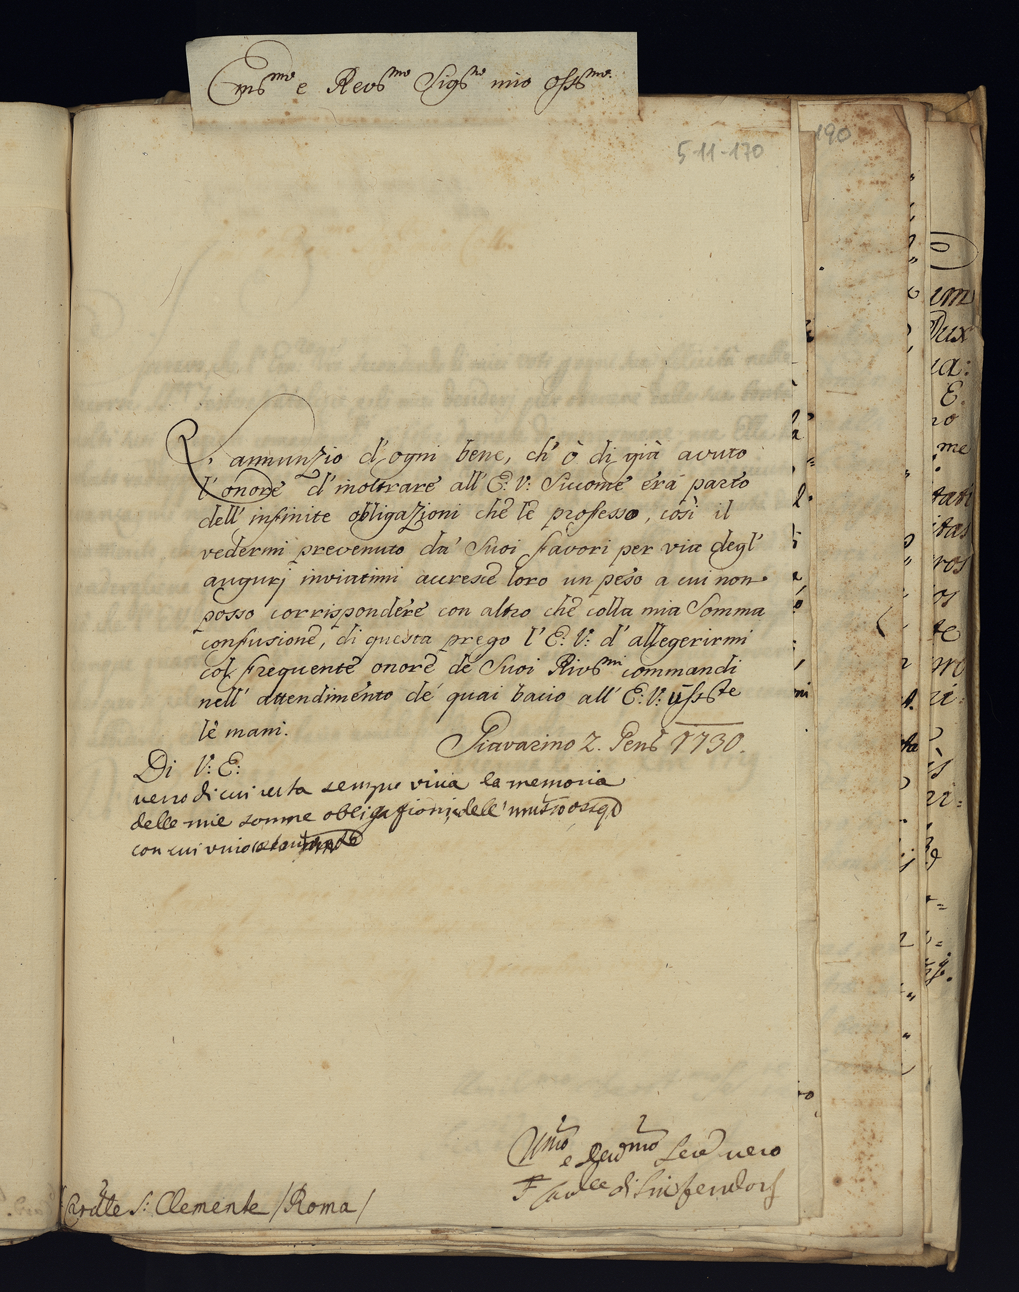 Em̅o e Rev̅mo Sig̅re mio oss̅mo
5-11-170
190
L'annunzio d'ogni bene, ch'ò di già avuto
l'onore d'inoltrare all'E: V: Siccome era parto
dell'infinite obligazioni che le professo, così il
vedermi prevenuto da' Suoi favori per via degl'
augurj inviatimi accresce loro un peso a cui non
posso corrispondere con altro che colla mia Somma
confusione, di questa prego l'E: V: d'allegerirmi
col frequente onore de Suoi Riv̅mi commandi
nell'attendimento de' quai bacio all'E: V:
le mani.
2. 1730.
Di V: E:
verso di cui resta sempre viva la memoria
delle mie somme obligazioni, e dell'
con cui vivo
e vero
F di
Cardle S: Clemente /Roma/